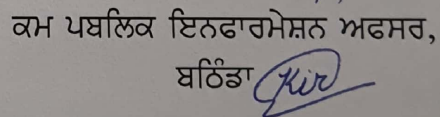 ਕਮ ਪਬਲਿਕ ਇਨਫਾਰਮੇਸ਼ਨ ਅਫਸਰ,
ਬਠਿੰਡਾ